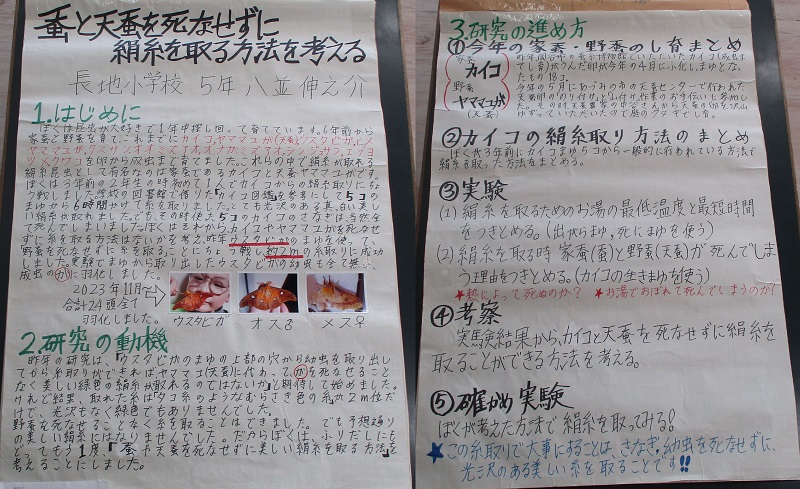 蚕と天蚕を死なせずに
絹糸を取る方法を考える
長地小学校 5年 八並伸之介
1.はじめに
ぼくは昆虫が大好きで1年中探し回って育てています。6年前から
家蚕と野蚕を育てこれまでにカイコ、ヤママユガ(天蚕)、
を卵から成虫まで育てました。これらの中で絹糸が取れる
絹糸昆虫として有名なのは家蚕であるカイコと天蚕ヤママユガです。
ぼくは3年前の2年生の時初めて1人でカイコからの絹糸取りにちょう
戦しました。学校の図書館で借りた「カイコ図鑑」を参考にして5コの
まゆから6時間かけて糸を取りました。とても光沢のある真っ白い美し
い絹糸が取れました。でも、その時使った5コのカイコのさなぎは当然全
て死んでしまいました。ぼくはまゆからカイコやヤママユガを死なせ
ずに糸を取る方法はないかを考え昨年ウスタビガのまゆを使って、
野蚕を死なせずに糸を取ることにちょう戦し約2mの糸取りに成功
しました。実験でまゆから取り出したウスタビガの幼虫も全て無事、
成虫のガに羽化しました。
2023年11月
合計24頭全て
羽化しました。
ウスタビガ
オス♂
メス♀
2.研究の動機
昨年の研究は、「ウスタビガのまゆの上部の穴から幼虫を取り出し
てから糸取りができればヤママユ(天蚕)に代わって、ガを死なせること
なく美しい緑色の絹糸が取れるのではないか」と期待して始めました。
けれど結果、取れた糸はタコ糸のようなむらさき色の糸が2m位だ
けで、光沢もなく緑色でもありませんでした。
野蚕を死なせることなく糸を取ることはできました。でも予想通り
の美しい絹糸にはなりませんでした。だからぼくは、ふりだしにもど
ってもう1度「蚕や天蚕を死なせずに美しい絹糸を取る方法」を
考えることにしました。
3.研究の進め方
①今年の家蚕・野蚕のし育まとめ
家蚕
カイコ
野蚕
ヤママユガ
(天蚕)
たもの18コ。
②カイコの絹糸取り方法のまとめ
ぼくが3年前に、カイコまゆ5コから一般的に行われている方法で
絹糸を取った方法をまとめる。
③実験
(1) 絹糸を取るためのお湯の最低温度と最短時間
をつきとめる。(出がらまゆ、死にまゆを使う)
(2) 絹糸を取る時 家蚕(蚕)と野蚕(天蚕)が死んでしま
う理由をつきとめる。(カイコの生きまゆを使う)
★熱によって死ぬのか? ★お湯でおぼれて死んでしまうのか?
④考察
実験結果から、カイコと天蚕を死なせずに絹糸を
取ることができる方法を考える。
⑤確かめ実験
ぼくが考えた方法で絹糸を取ってみる!
★この糸取りで大事にすることは、さなぎ・幼虫を死なせずに、
光沢のある美しい糸を取ることです!!